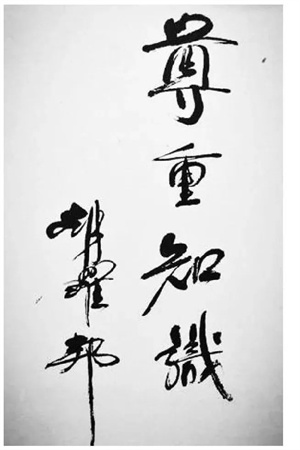 尊重知識
胡耀邦